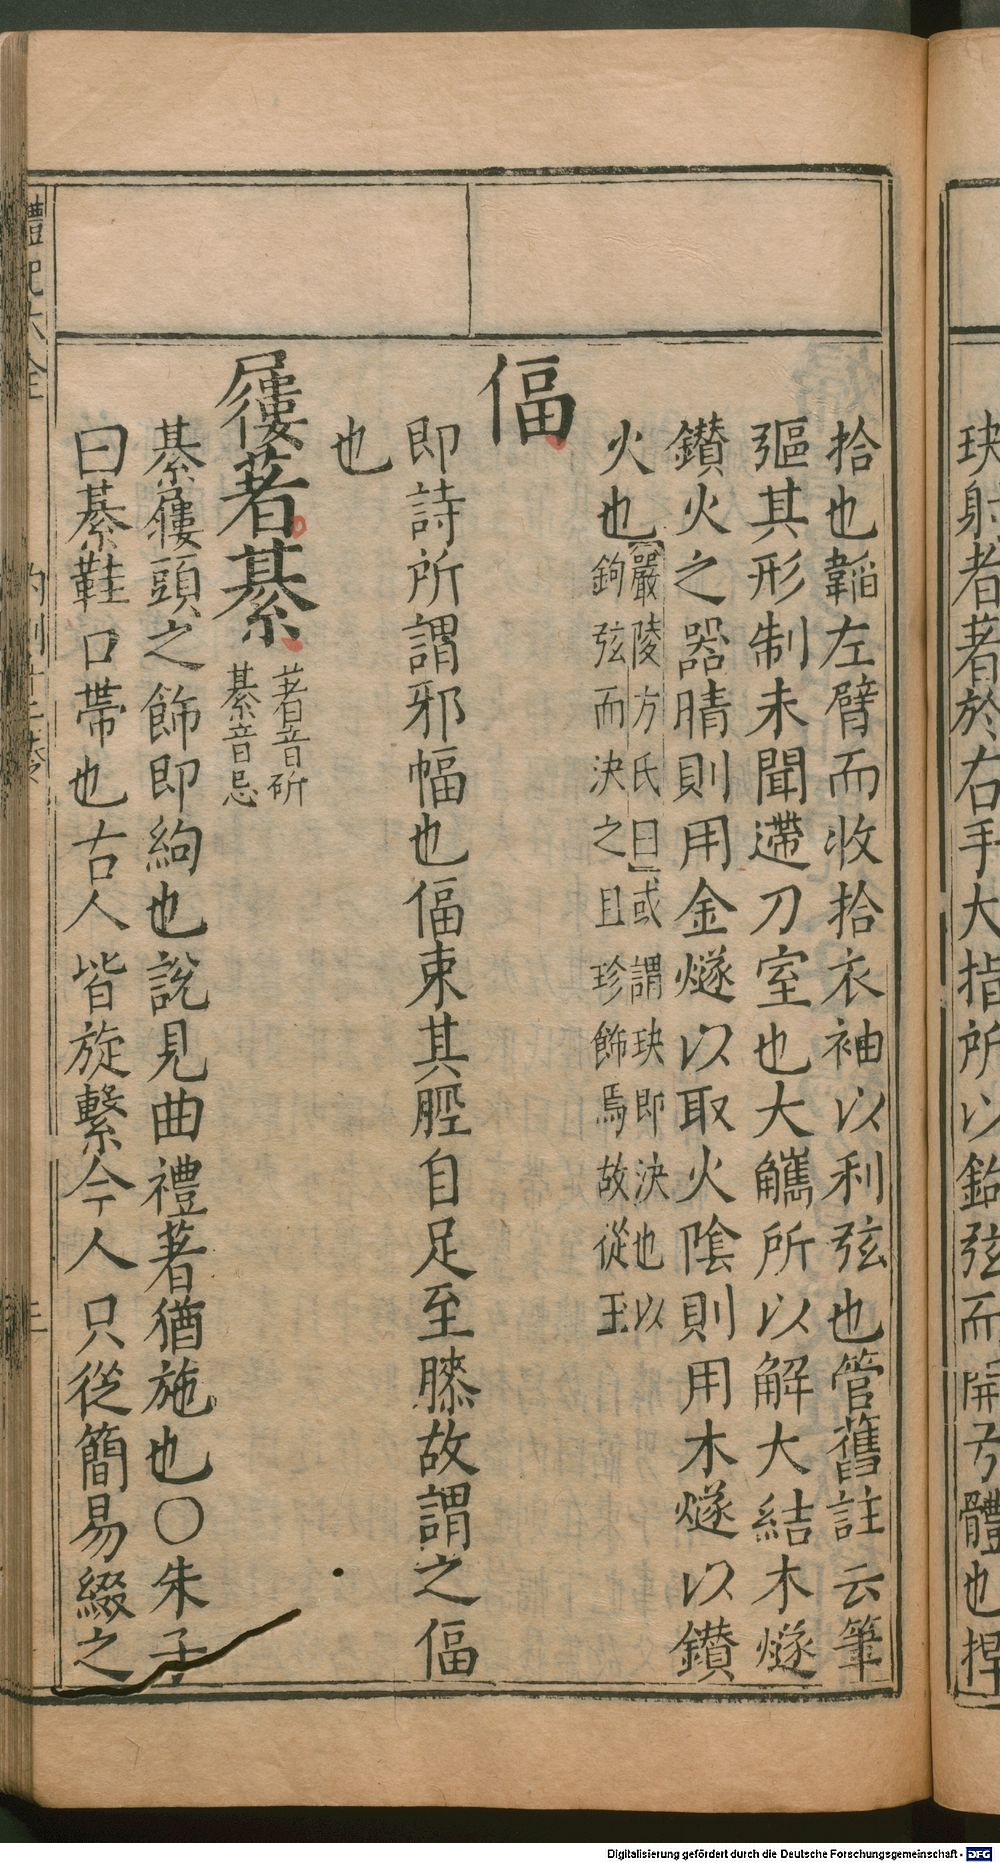 玦射者著於右手大指所以鉤弦而開弓體也捍
拾也韜左臂而收拾衣袖以利弦也管舊註云筆
彄其形制未聞遰刀室也大觿所以解大結木燧
鑚火之器晴則用金燧以取火陰則用木燧以鑚
火也
嚴陵方氏曰或謂玦即決也以
鉤弦而決之且珍飾焉故從玉
偪
即詩所謂邪幅也偪束其脛自足至膝故謂之偪
也
屨著綦
著音斫
綦音忌
綦屨頭之飾即絇也說見曲禮著猶施也○朱子
曰綦鞋口帶也古人皆旋繫今人只從簡易綴之
禮記大全
Digitalisierung gefördert durch die Deutsche Forschungsgemeinschaft - DFG